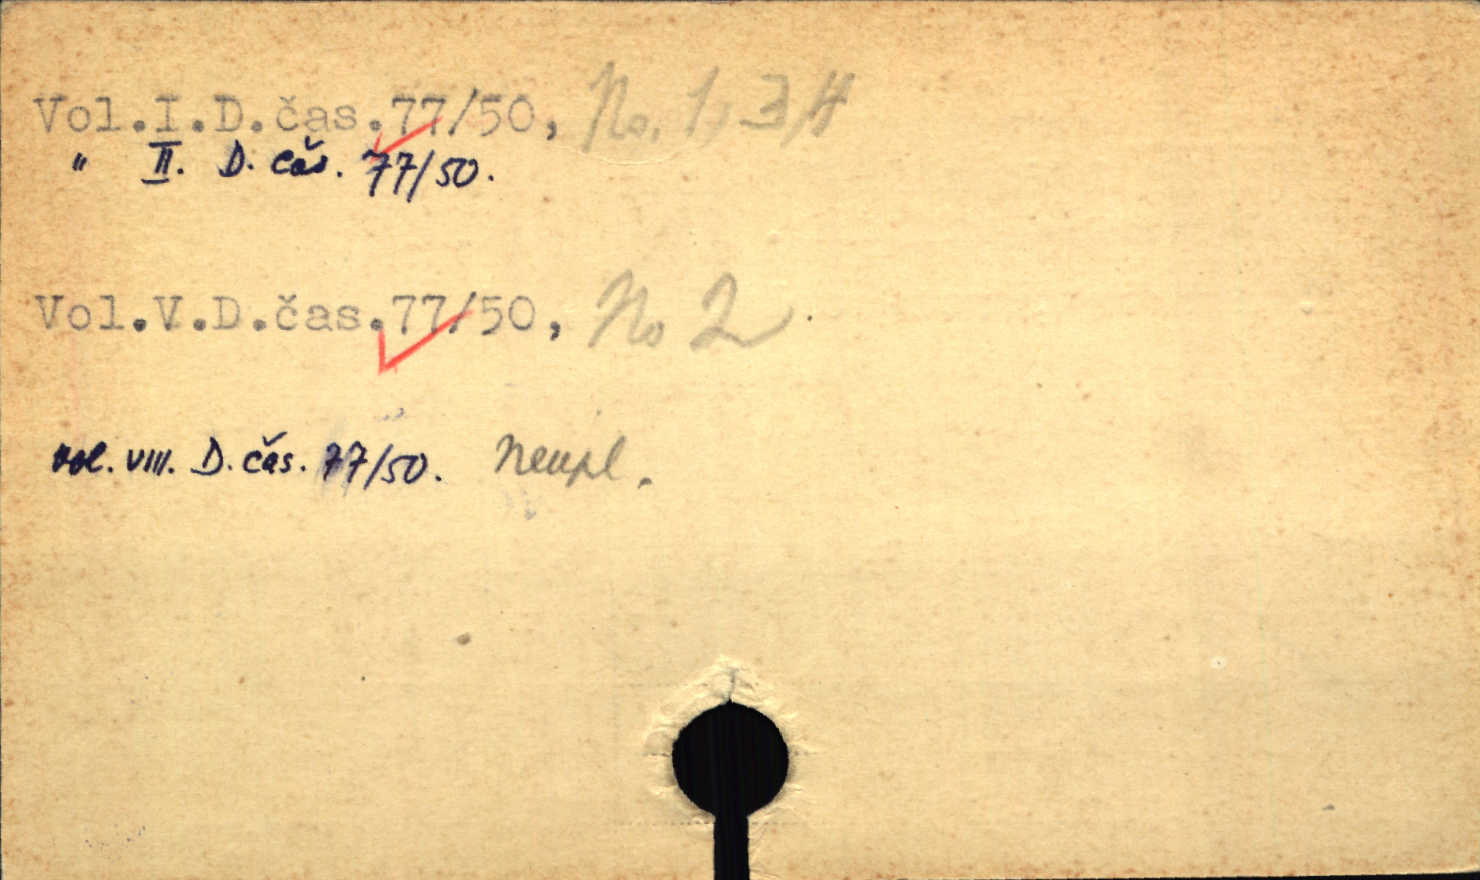 Vol.I.D.čas.77/50, No. 1, 3, 4
" II. D. čas. 77/50.
Vol.V.D.čas.77/50, No 2
vol. VIII. D. čas. 77/50. neúpl.